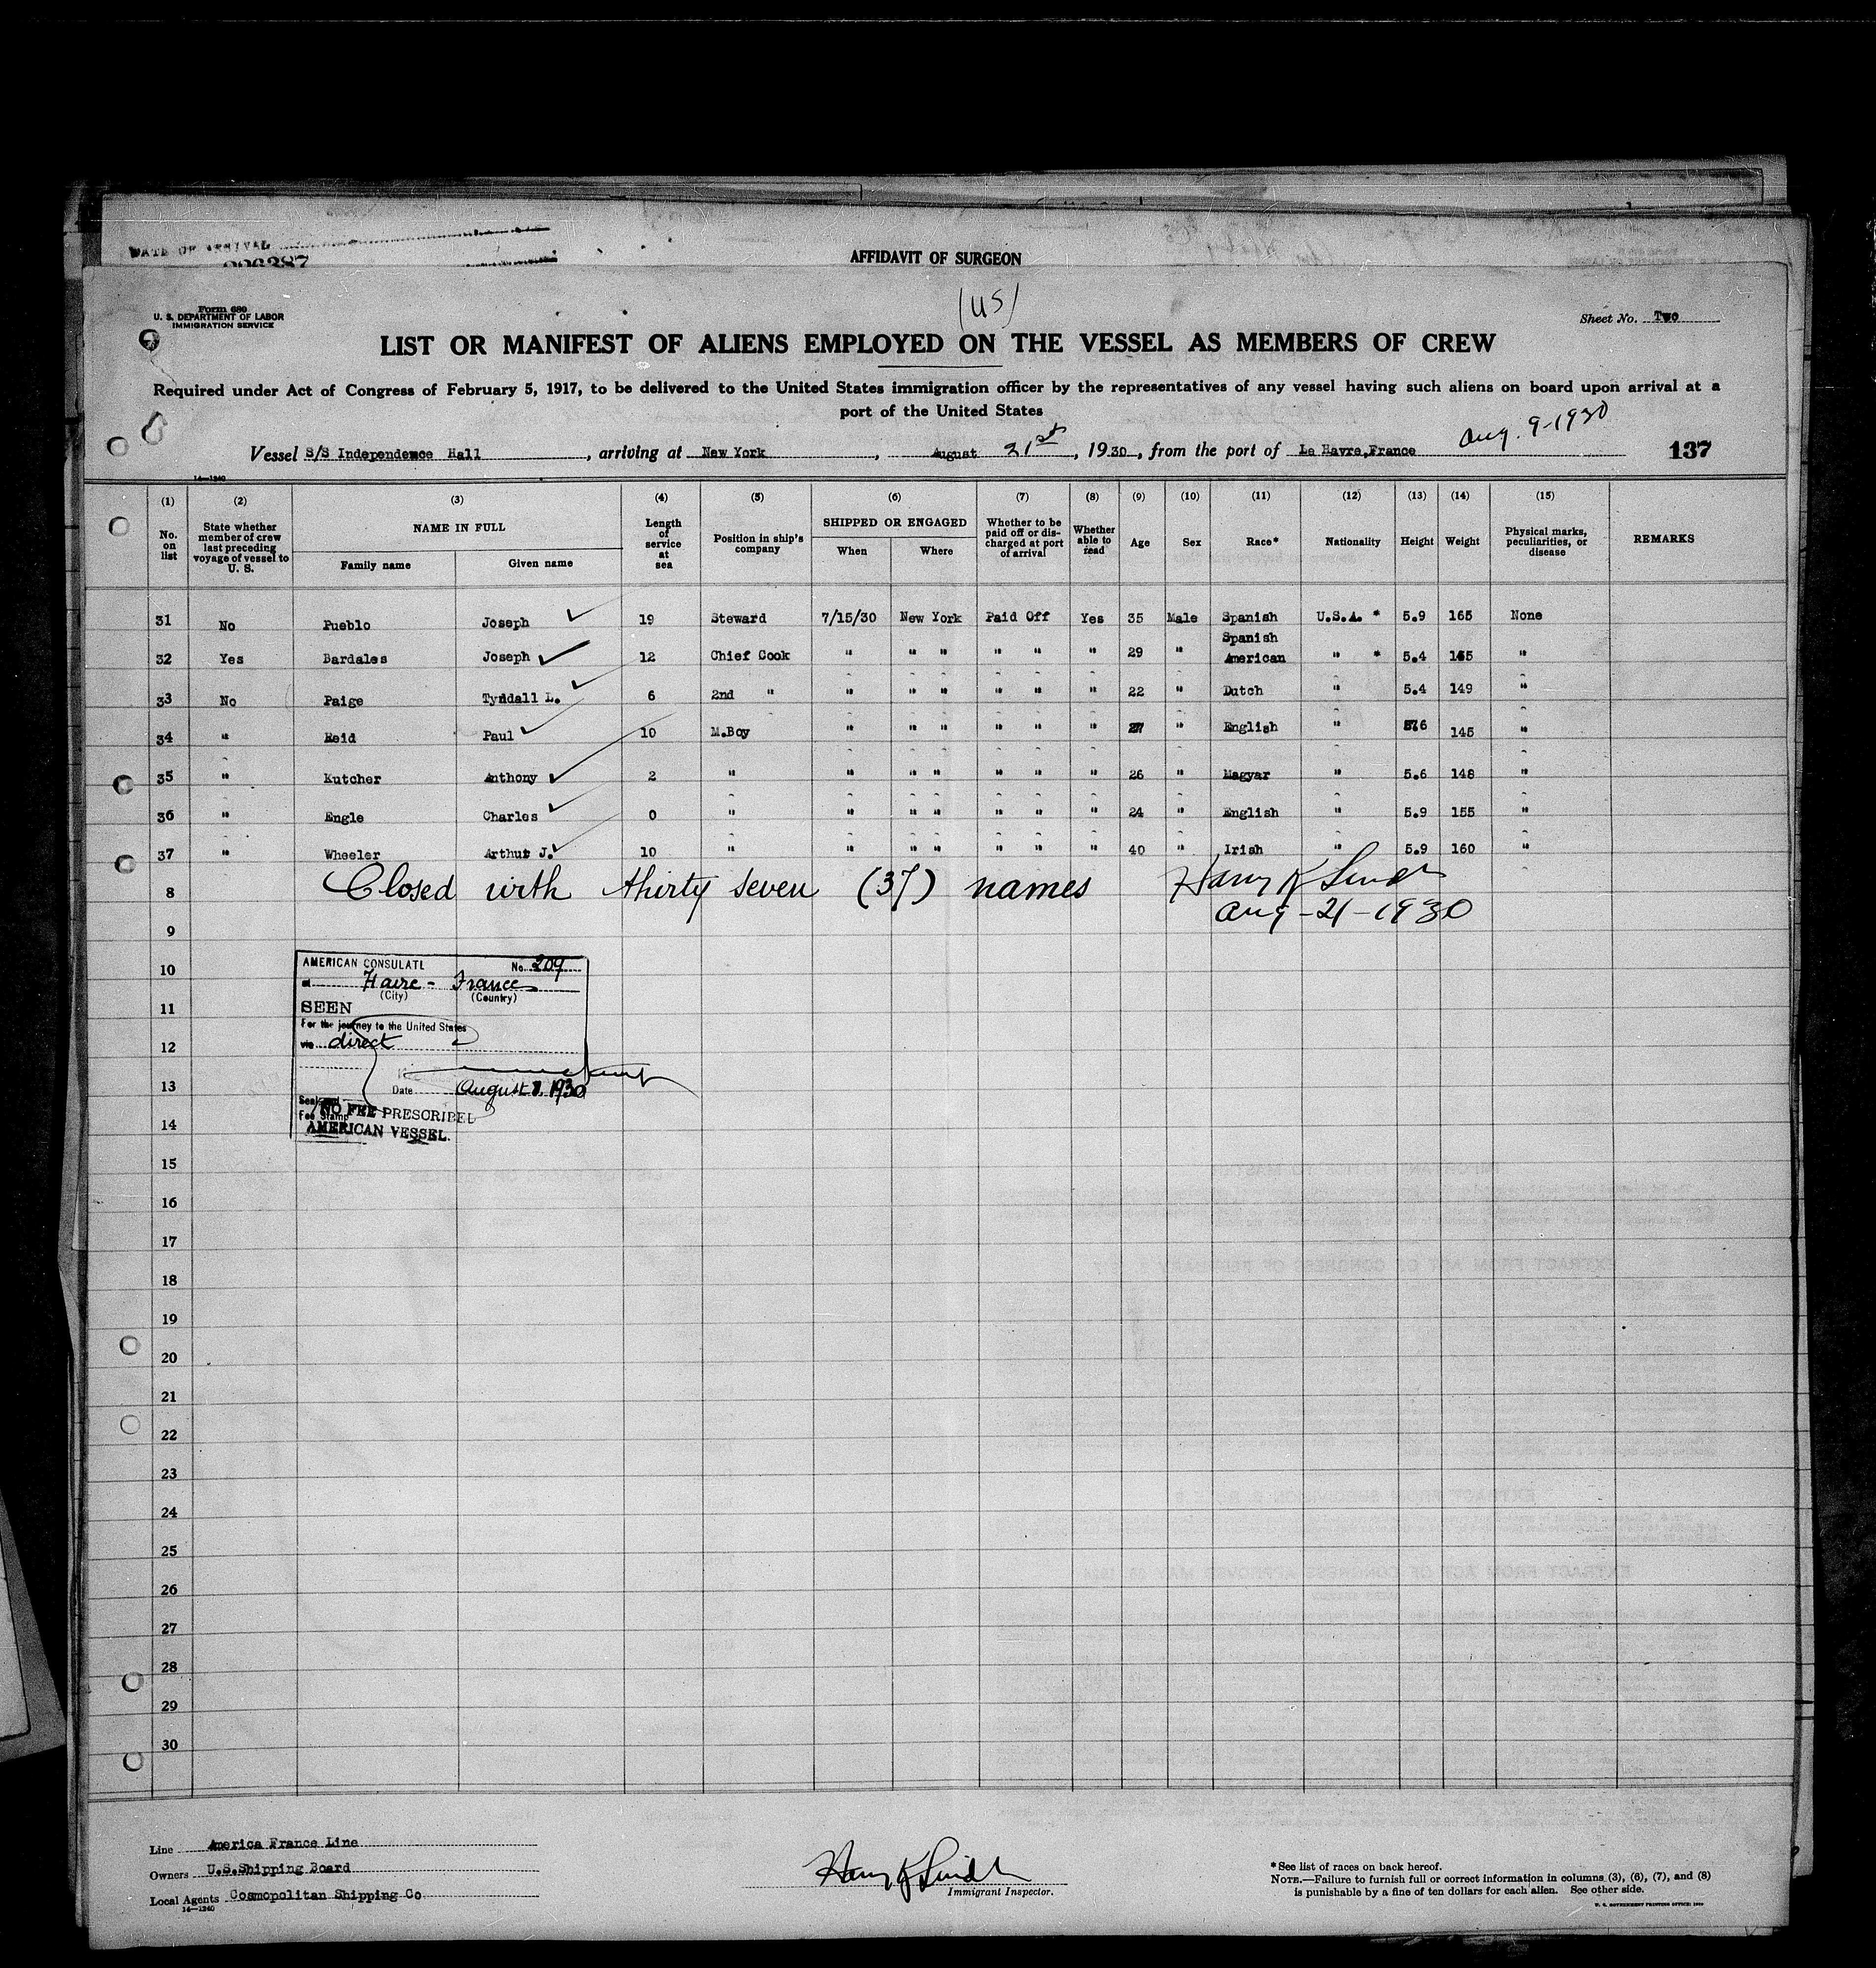 DATE OF ARRIVAL
AFFIDAVIT OF SURGEON
(US)
Form 680
U. S. DEPARTMENT OF LABOR
IMMIGRATION SERVICE
Sheet No. Two
LIST OR MANIFEST OF ALIENS EMPLOYED ON THE VESSEL AS MEMBERS OF CREW
Required under Act of Congress of February 5, 1917, to be delivered to the United States immigration officer by the representatives of any vessel having such aliens on board upon arrival at a
port of the United States
Aug. 9-1930
Vessel S/S Independence Hall, arriving at New York, August 21st, 1930, from the port of Le Havre, France 137
14—1240
(1) (2) (3) (4) (5) (6) (7) (8) (9) (10) (11) (12) (13) (14) (15)
No. on list State whether member of crew last preceding voyage of vessel to U. S. NAME IN FULL Family name Given name Length of service at sea Position in ship's company SHIPPED OR ENGAGED When Where Whether to be paid off or discharged at port of arrival Whether able to read Age Sex Race* Nationality Height Weight Physical marks, peculiarities, or disease REMARKS
31 No Pueblo Joseph ✓ 19 Steward 7/15/30 New York Paid Off Yes 35 Male Spanish U.S.A. * 5.9 165 None
32 Yes Bardales Joseph ✓ 12 Chief Cook " " " " " " 29 " Spanish American " * 5.4 155 "
33 No Paige Tyndall L. ✓ 6 2nd " " " " " " " 22 " Dutch " 5.4 149 "
34 " Reid Paul ✓ 10 M.Boy " " " " " " 27 " English " 5.6 145 "
35 " Kutcher Anthony ✓ 2 " " " " " " " 26 " Magyar " 5.6 148 "
36 " Engle Charles ✓ 0 " " " " " " " 24 " English " 5.9 155 "
37 " Wheeler Arthur J. ✓ 10 " " " " " " " 40 " Irish " 5.9 160 "
8 Closed with thirty seven (37) names Harry K Lindh
Aug-21-1930
9
10
11
12
13
14
AMERICAN CONSULATE No. 209
at Havre - France
(City) (Country)
SEEN
For the journey to the United States
via direct
Date August 8, 1930
Seal and
Fee Stamp
NO FEE PRESCRIBED
AMERICAN VESSEL.
15
16
17
18
19
20
21
22
23
24
25
26
27
28
29
30
Line America France Line
Owners U.S.Shipping Board
Local Agents Cosmopolitan Shipping Co
14—1240
Harry K Lindh
Immigrant Inspector.
*See list of races on back hereof.
NOTE.—Failure to furnish full or correct information in columns (3), (6), (7), and (8)
is punishable by a fine of ten dollars for each alien. See other side.
U. S. GOVERNMENT PRINTING OFFICE: 1929